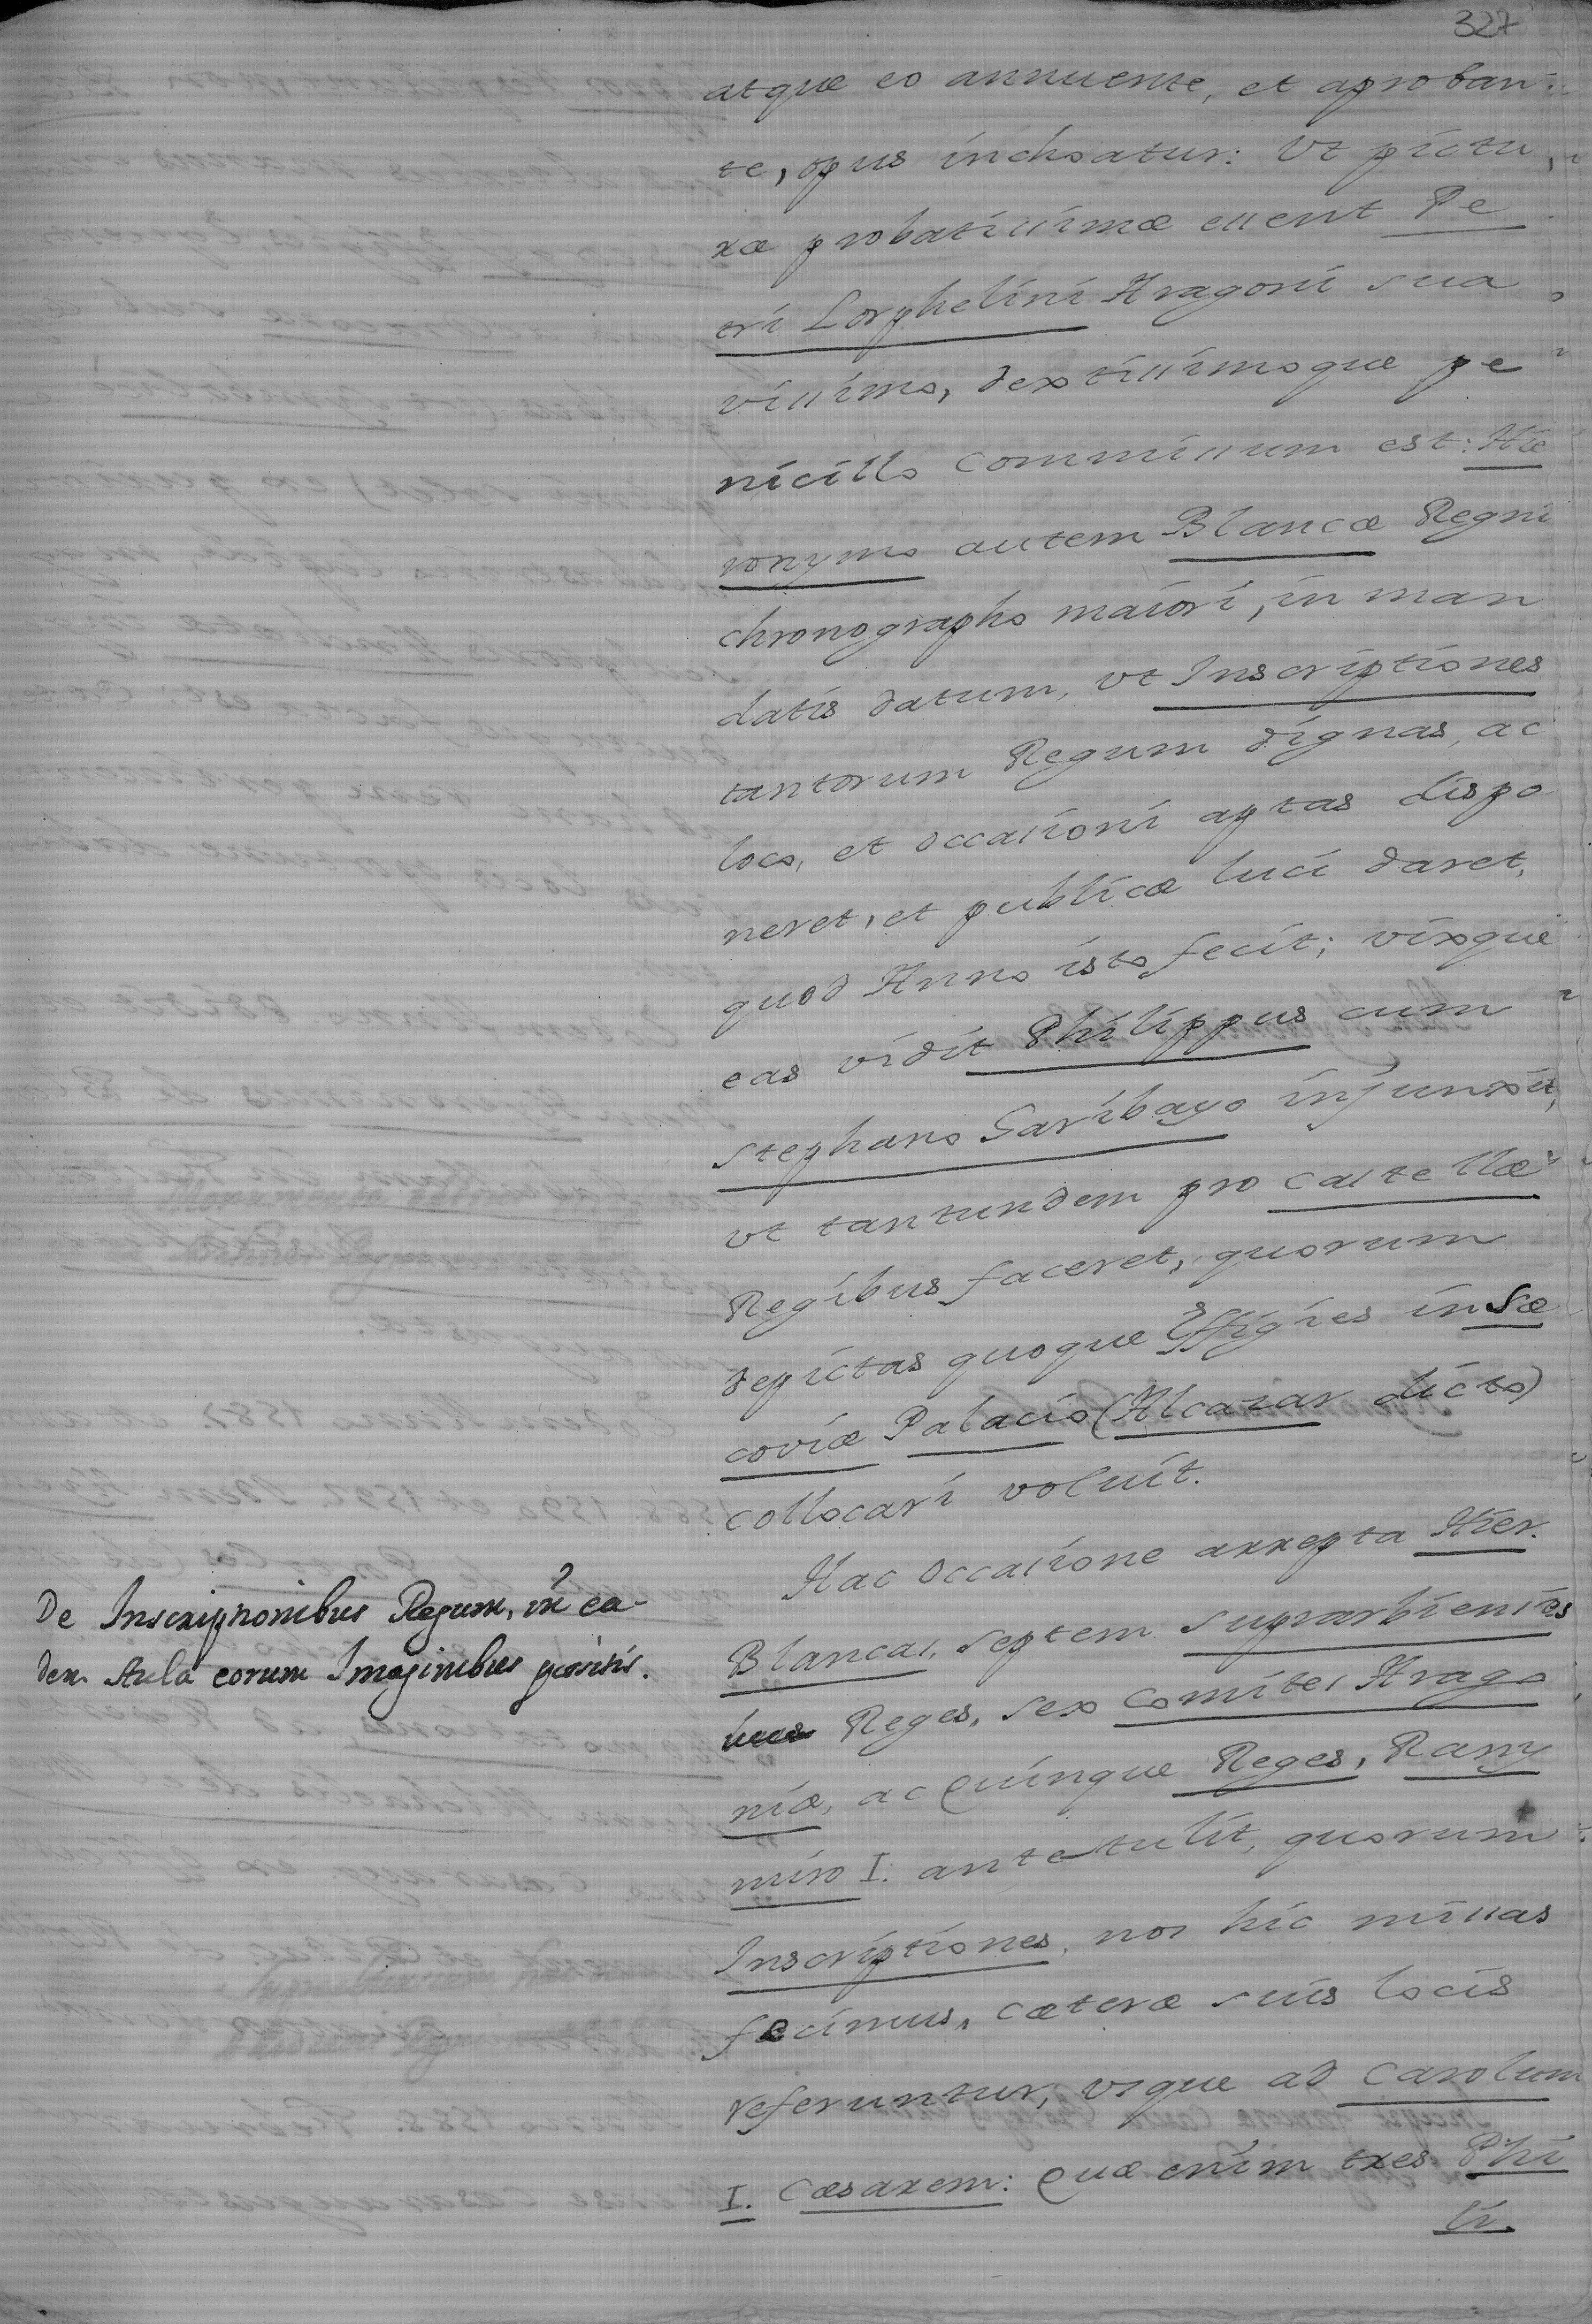 327
atque eo annuente, et aproban-
te, opus inchoatur: Vt pictu,
ræ probatissimæ essent Pe
tri Lorphelini Aragonii sua
vissimo, dextissimoque pe
nicillo commissum est: Hie
ronymo autem Blancæ Regni
chronographo maiori, in man
datis datum, vt Inscriptiones
tantorum Regum dignas, ac
loco, et occasioni aptas dispo
neret, et publicæ luci daret,
quod Anno isto fecit; vixque
eas vidit Philippus cum
Stephano Garibayo injunxit,
vt tantundem pro Castellæ
Regibus faceret, quorum
depictas quoque Effigies in Se
coviæ Palacio (Alcazar dicto)
collocari voluit.
Hac occasione arrepta Hier.
Blancas, septem suprarbienses
Reges, sex Comites Arago
niæ, ac Quinque Reges, Rany
miro I. antetulit, quorum
Inscriptiones, nos hic missas
fecimus, cæteræ suis locis
referuntur, vsque ad Carolum
I. Cæsarem: Quæ enim tres Phi
li.
De Inscriptionibus Regum, in ea-
dem Aula eorum Imaginibus positis.